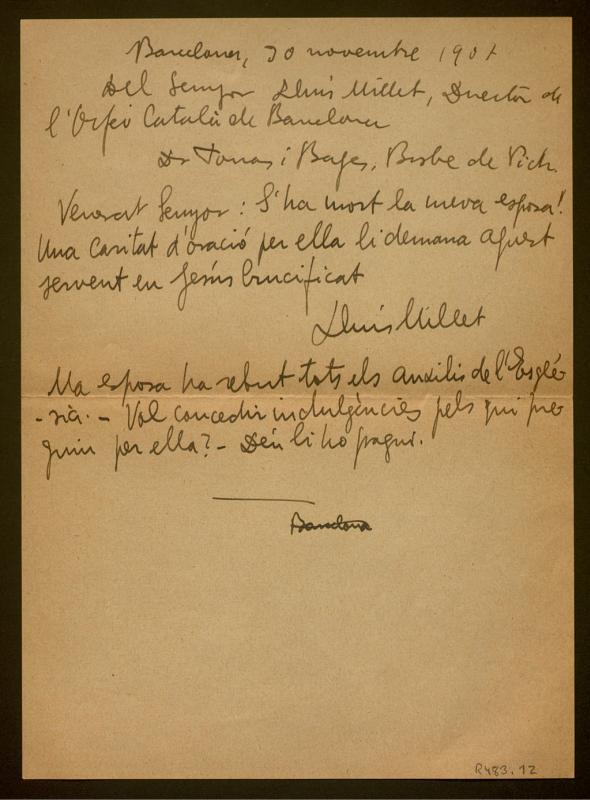 Barcelona, 30 novembre 1901
Del Senyor Lluís Millet, Director de
l'Orfeó Català de Barcelona
Dr Torras i Bages, Bisbe de Vich.
Venerat Senyor: S'ha mort la meva esposa!
Una caritat d'oració per ella li demana aquest
servent en Jesús Crucificat
Lluís Millet
Ma esposa ha rebut tots els auxilis de l'Esglé-
-sia. - Vol concedir indulgències pels qui pre-
guin per ella? - Déu li ho pagui.
Barcelona
R483.12